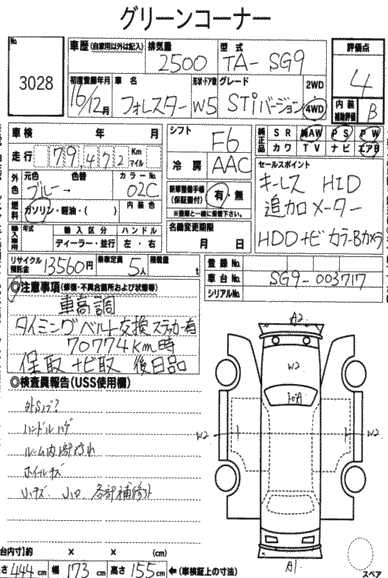 グリーンコーナー
No.
3028
車歴(自家用以外は記入)
排気量
型式
2500
TA-SG9
評価点
4
初度登録年月
車名
形状・ドア数
グレード
16/12月
フォレスター
W5
STiバージョン
2WD
4WD
内装
補助評価
B
車検 年 月
シフト
F6
純正品
SR 純AW PS PW
カワ TV ナビ エアB
走行
79,472
Km
マイル
冷房
AAC
セールスポイント
外色
元色 色替
カラーNo.
ブルー
02C
新車整備手帳
(保証書付)
有・無
※登録と一緒に後送りで可
キーレス HID
追加メーター
HDDナビ カラーBカメラ
燃料
ガソリン・軽油・( )
内装色
名義変更期限
月 日
輸入車
年式
輸入区分
ハンドル
ディーラー・並行
左・右
リサイクル
預託金
13560円
乗車定員
5人
積載量
t
登録No.
車台No.
SG9-003717
シリアルNo.
◎注意事項(修復・不具合箇所および状態等)
車高調
タイミングベルト交換 ステッカー有
70774km時
保取 ナビ取 後日品
◎検査員報告(USS使用欄)
ハンドルハゲ
ルーム内部汚れ
ホイールキズ
小キズ 小凹 各部補修ハケ
A2
W2
W2
W2
A1
スペア
荷台内寸)約 × × (cm)
長さ444cm 幅173cm 高さ155cm ←(車検証上の寸法)